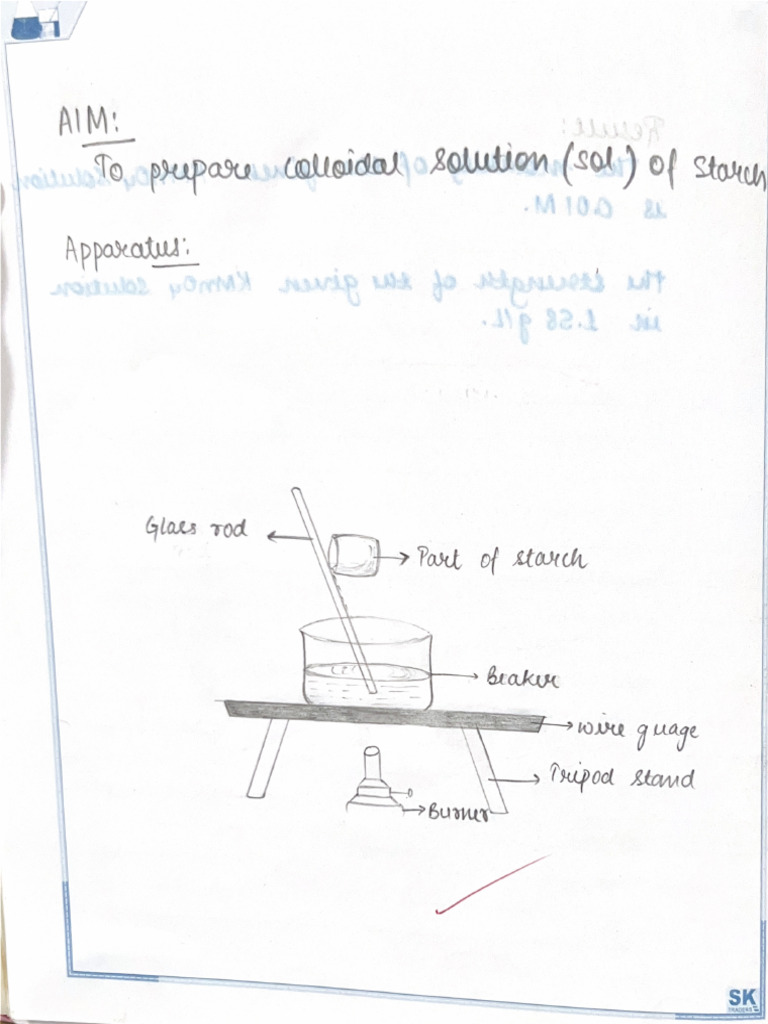 AIM:
To prepare colloidal solution (sol) of starch
Apparatus:
Glass rod
Part of starch
Beaker
wire guage
Tripod stand
Burner
SK
TRADERS